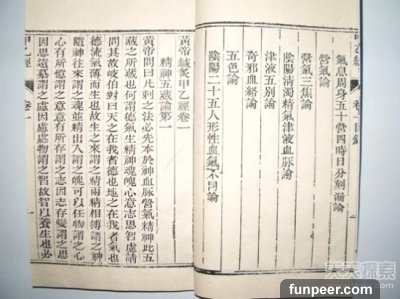 甲乙經 卷一目錄
氣息周身五十營四時日分刻漏論
營氣論
營氣三焦論
陰陽清濁精氣津液血脈論
津液五別論
奇邪血絡論
五色論
陰陽二十五人形性血氣不同論
黃帝鍼灸甲乙經卷一
精神五臟論第一
黃帝問曰凡刺之法必先本於神血脈營氣精神此五
藏之所藏也何謂德氣生精神魂魄心意志思智慮請
問其故岐伯對曰天之在我者德也地之在我者氣也
德流氣薄而生也故生之來謂之精兩精相搏謂之神
隨神往來謂之魂並精出入謂之魄可以任物謂之心
心有所憶謂之意意有所存謂之志因志存變謂之思
因思遠慕謂之慮因慮處物謂之智故智以養生也必
甲乙經 卷一 一
天天探索
funpeer.com